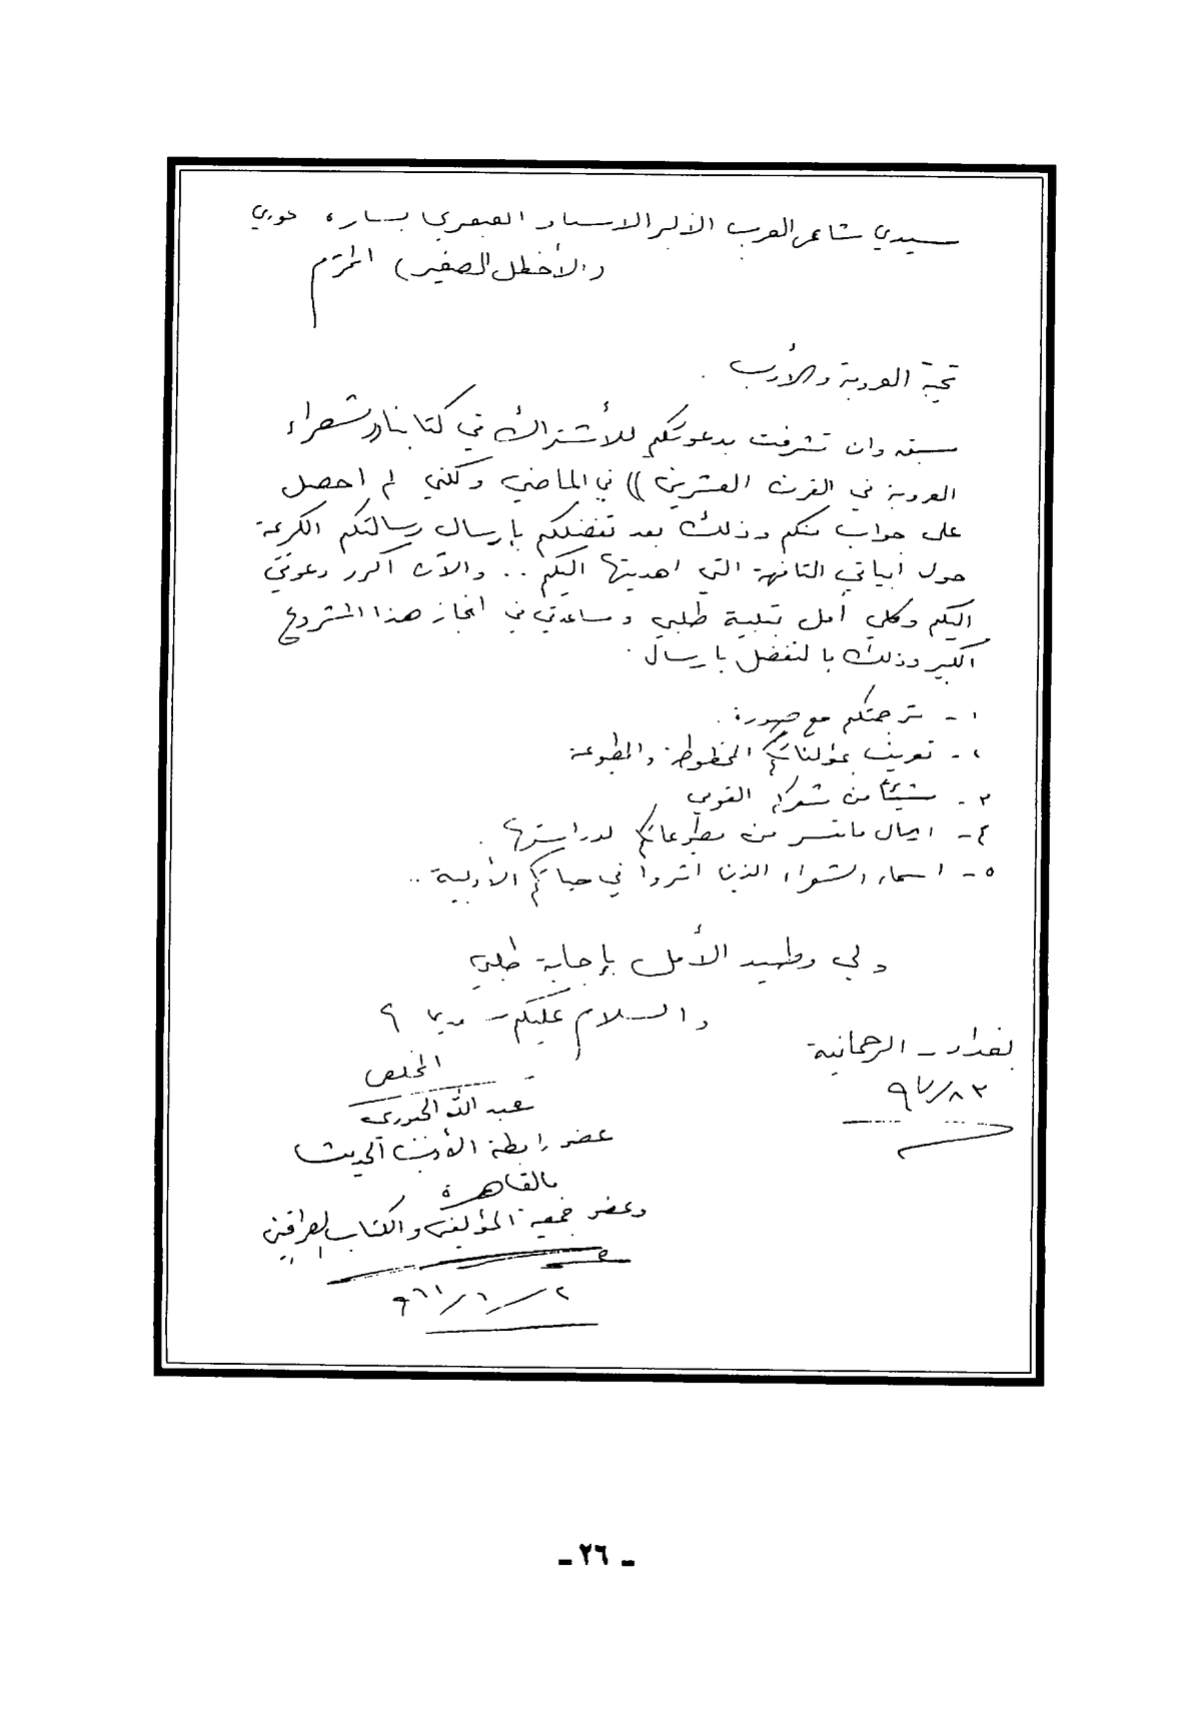 سيدي شاعر العرب الأكبر الاستاذ العبقري بشاره خوري
(الأخطل الصغير) المحترم
تحية العروبة والأدب .
سبق وان تشرفت بدعوتكم للأشتراك في كتابنا ((شعراء
العروبة في القرن العشرين)) في الماضي ولكني لم احصل
على جواب منكم وذلك بعد تفضلكم بإرسال رسالتكم الكريمة
حول أبياتي التافهة التي اهديتها اليكم .. والآن اكرر دعوتي
اليكم وكلي أمل بتلبية طلبي ومساعدتي في انجاز هذا المشروع
الكبير وذلك بالتفضل بارسال .
١ - ترجمتكم مع صورة .
٢ - تعريف بمؤلفاتكم المخطوطة والمطبوعة
٣ - شيئاً من شعركم القومي
٤ - ارسال ماتيسر من مطبوعاتكم لدراستها .
٥ - اسماء الشعراء الذين أثروا في حياتكم الأدبية ..
ولي وطيد الأمل بإجابة طلبي
والسلام عليكم
بغداد - الرحمانية
المخلص
عبد الله الجبوري
عضو رابطة الأدب الحديث
بالقاهرة
وعضو جمعية المؤلفين والكتاب العراقيين
٢/١/٩٦١
- ٢٦ -